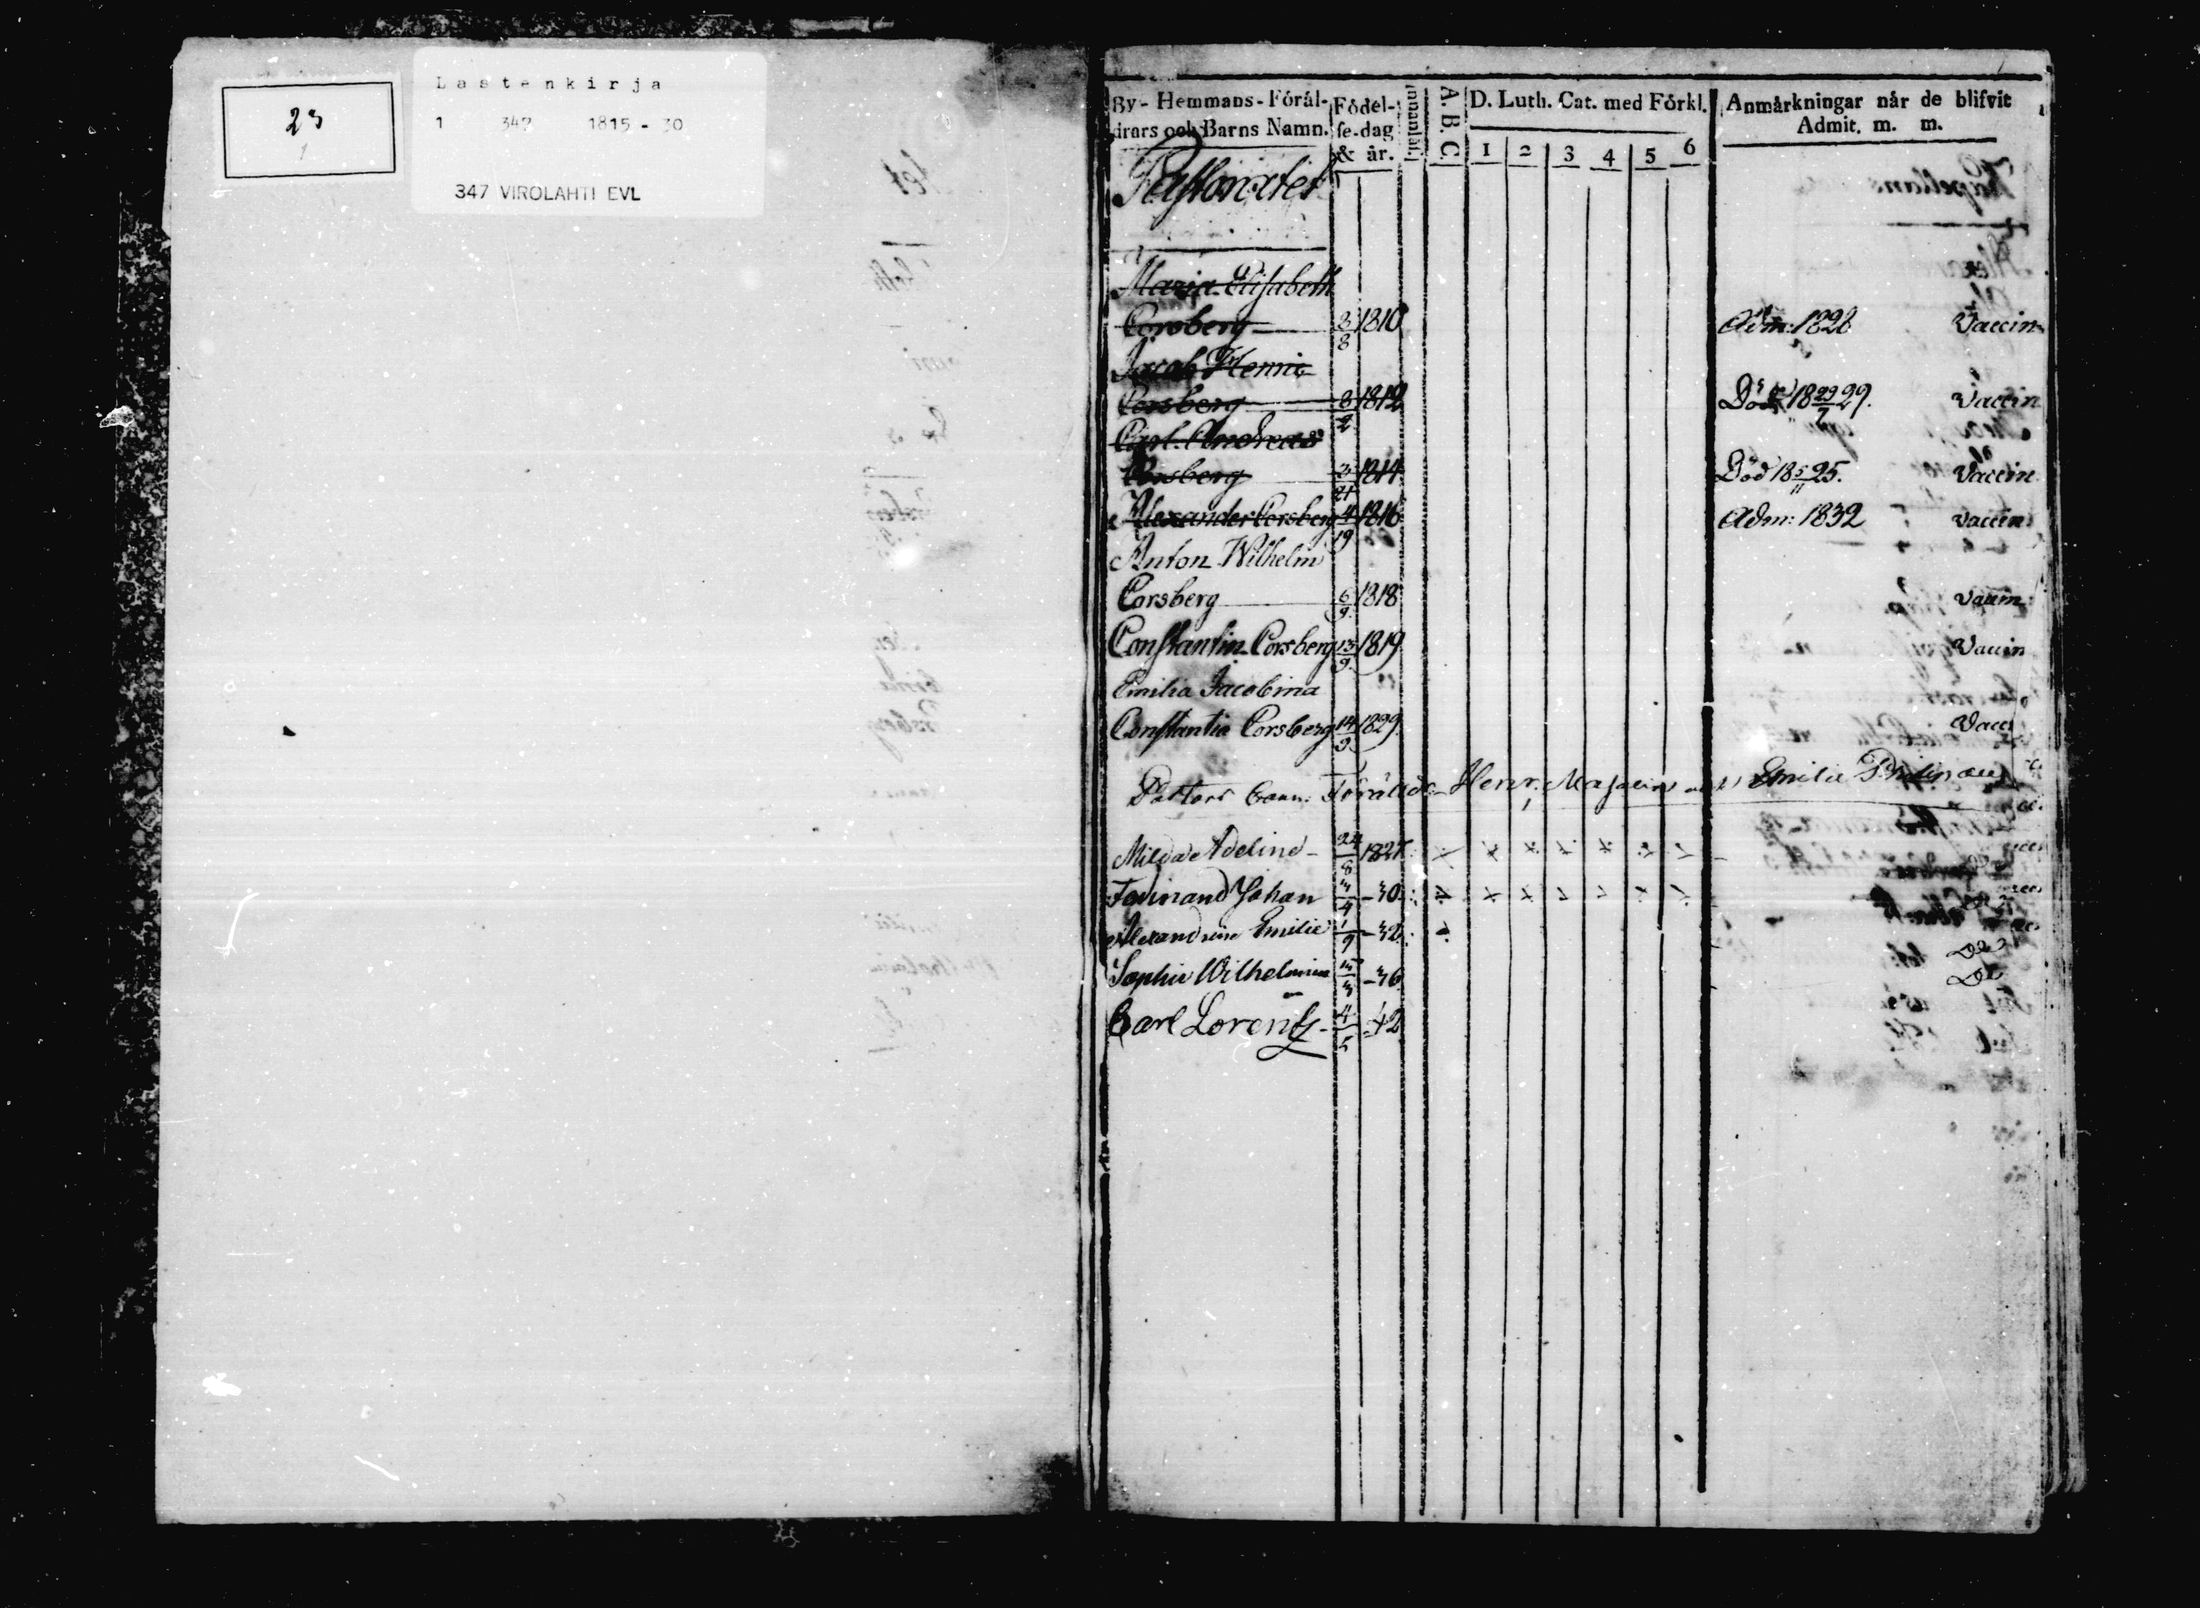 23
1
Lastenkirja
1 347 1815 - 30
347 VIROLAHTI EVL
By- Hemmans- Förål-
drars och Barns Namn.
Födel-
se-dag
& år.
Innanläs.
A. B. C.
D. Luth. Cat. med Förkl.
1 2 3 4 5 6
Anmärkningar når de blifvit
Admit. m. m.
Pastoratet
Maria Elisabeth
Corsberg 3/8 1810 Adm: 1826 Vaccin
Jacob Henric
Corsberg 8/2 1812 Död 18 29/7 29. Vaccin
Carl Andreas
Corsberg 1814 Död 18 5/11 25. Vaccin
Alexander Corsberg 4/19 1816 Adm: 1832 Vaccin
Anton Wilhelm
Corsberg 6/9 1818 Vaccin
Constantin Corsberg 13/9 1819 Vaccin
Emilia Jacobina
Constantia Corsberg 14/9 1829. Vacci
Pastors Barn: Föräldr Henr. Emilie
Milda Adelind 24/8 182
Ferdinand Johan 3/4 -30
Alexandrine Emilie 1/9 -32
Sophie Wilhelmina -36
Carl Lorentz 4/5 -42